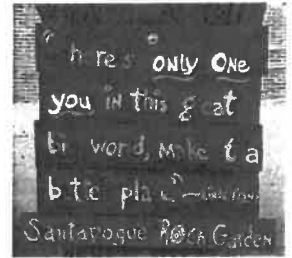 There's only One
you in this great
big world, make it a
better place ~
Santapogue Rock Garden